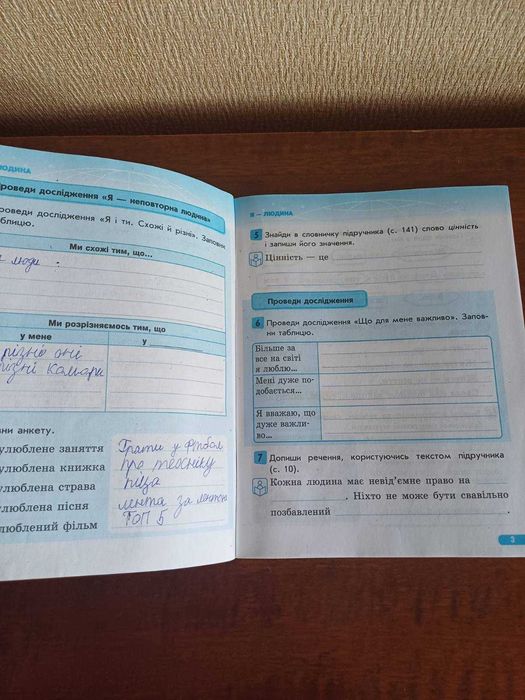 ЛЮДИНА
Проведи дослідження «Я — неповторна людина»
Проведи дослідження «Я і ти. Схожі й різні». Заповни
таблицю.
Ми схожі тим, що...
люди
Ми розрізняємось тим, що
у мене
у
різно
різні
анкету.
улюблене заняття
Грати у футбол
улюблена книжка
про
улюблена страва
піца
улюблена пісня
за
улюблений фільм
ТОП 5
Я – ЛЮДИНА
5 Знайди в словничку підручника (с. 141) слово цінність
і запиши його значення.
Цінність — це
Проведи дослідження
6 Проведи дослідження «Що для мене важливо». Запов-
ни таблицю.
Більше за
все на світі
я люблю...
Мені дуже по-
добається...
Я вважаю, що
дуже важли-
во...
7 Допиши речення, користуючись текстом підручника
(с. 10).
Кожна людина має невід'ємне право на
. Ніхто не може бути свавільно
позбавлений
3